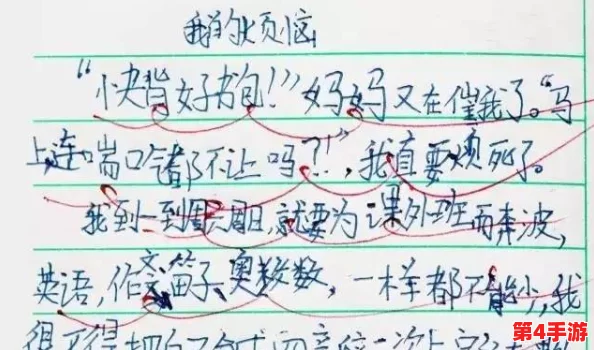 我的烦恼
“快背好书包！”妈妈又在催我了。“马
上,连喘口气都不让吗？！”,我真要烦死了。
我到一到周六周日,就要为课外班而奔波,
英语,作文,笛子、奥数,一样都不能少,我
恨不得把自
第4手游